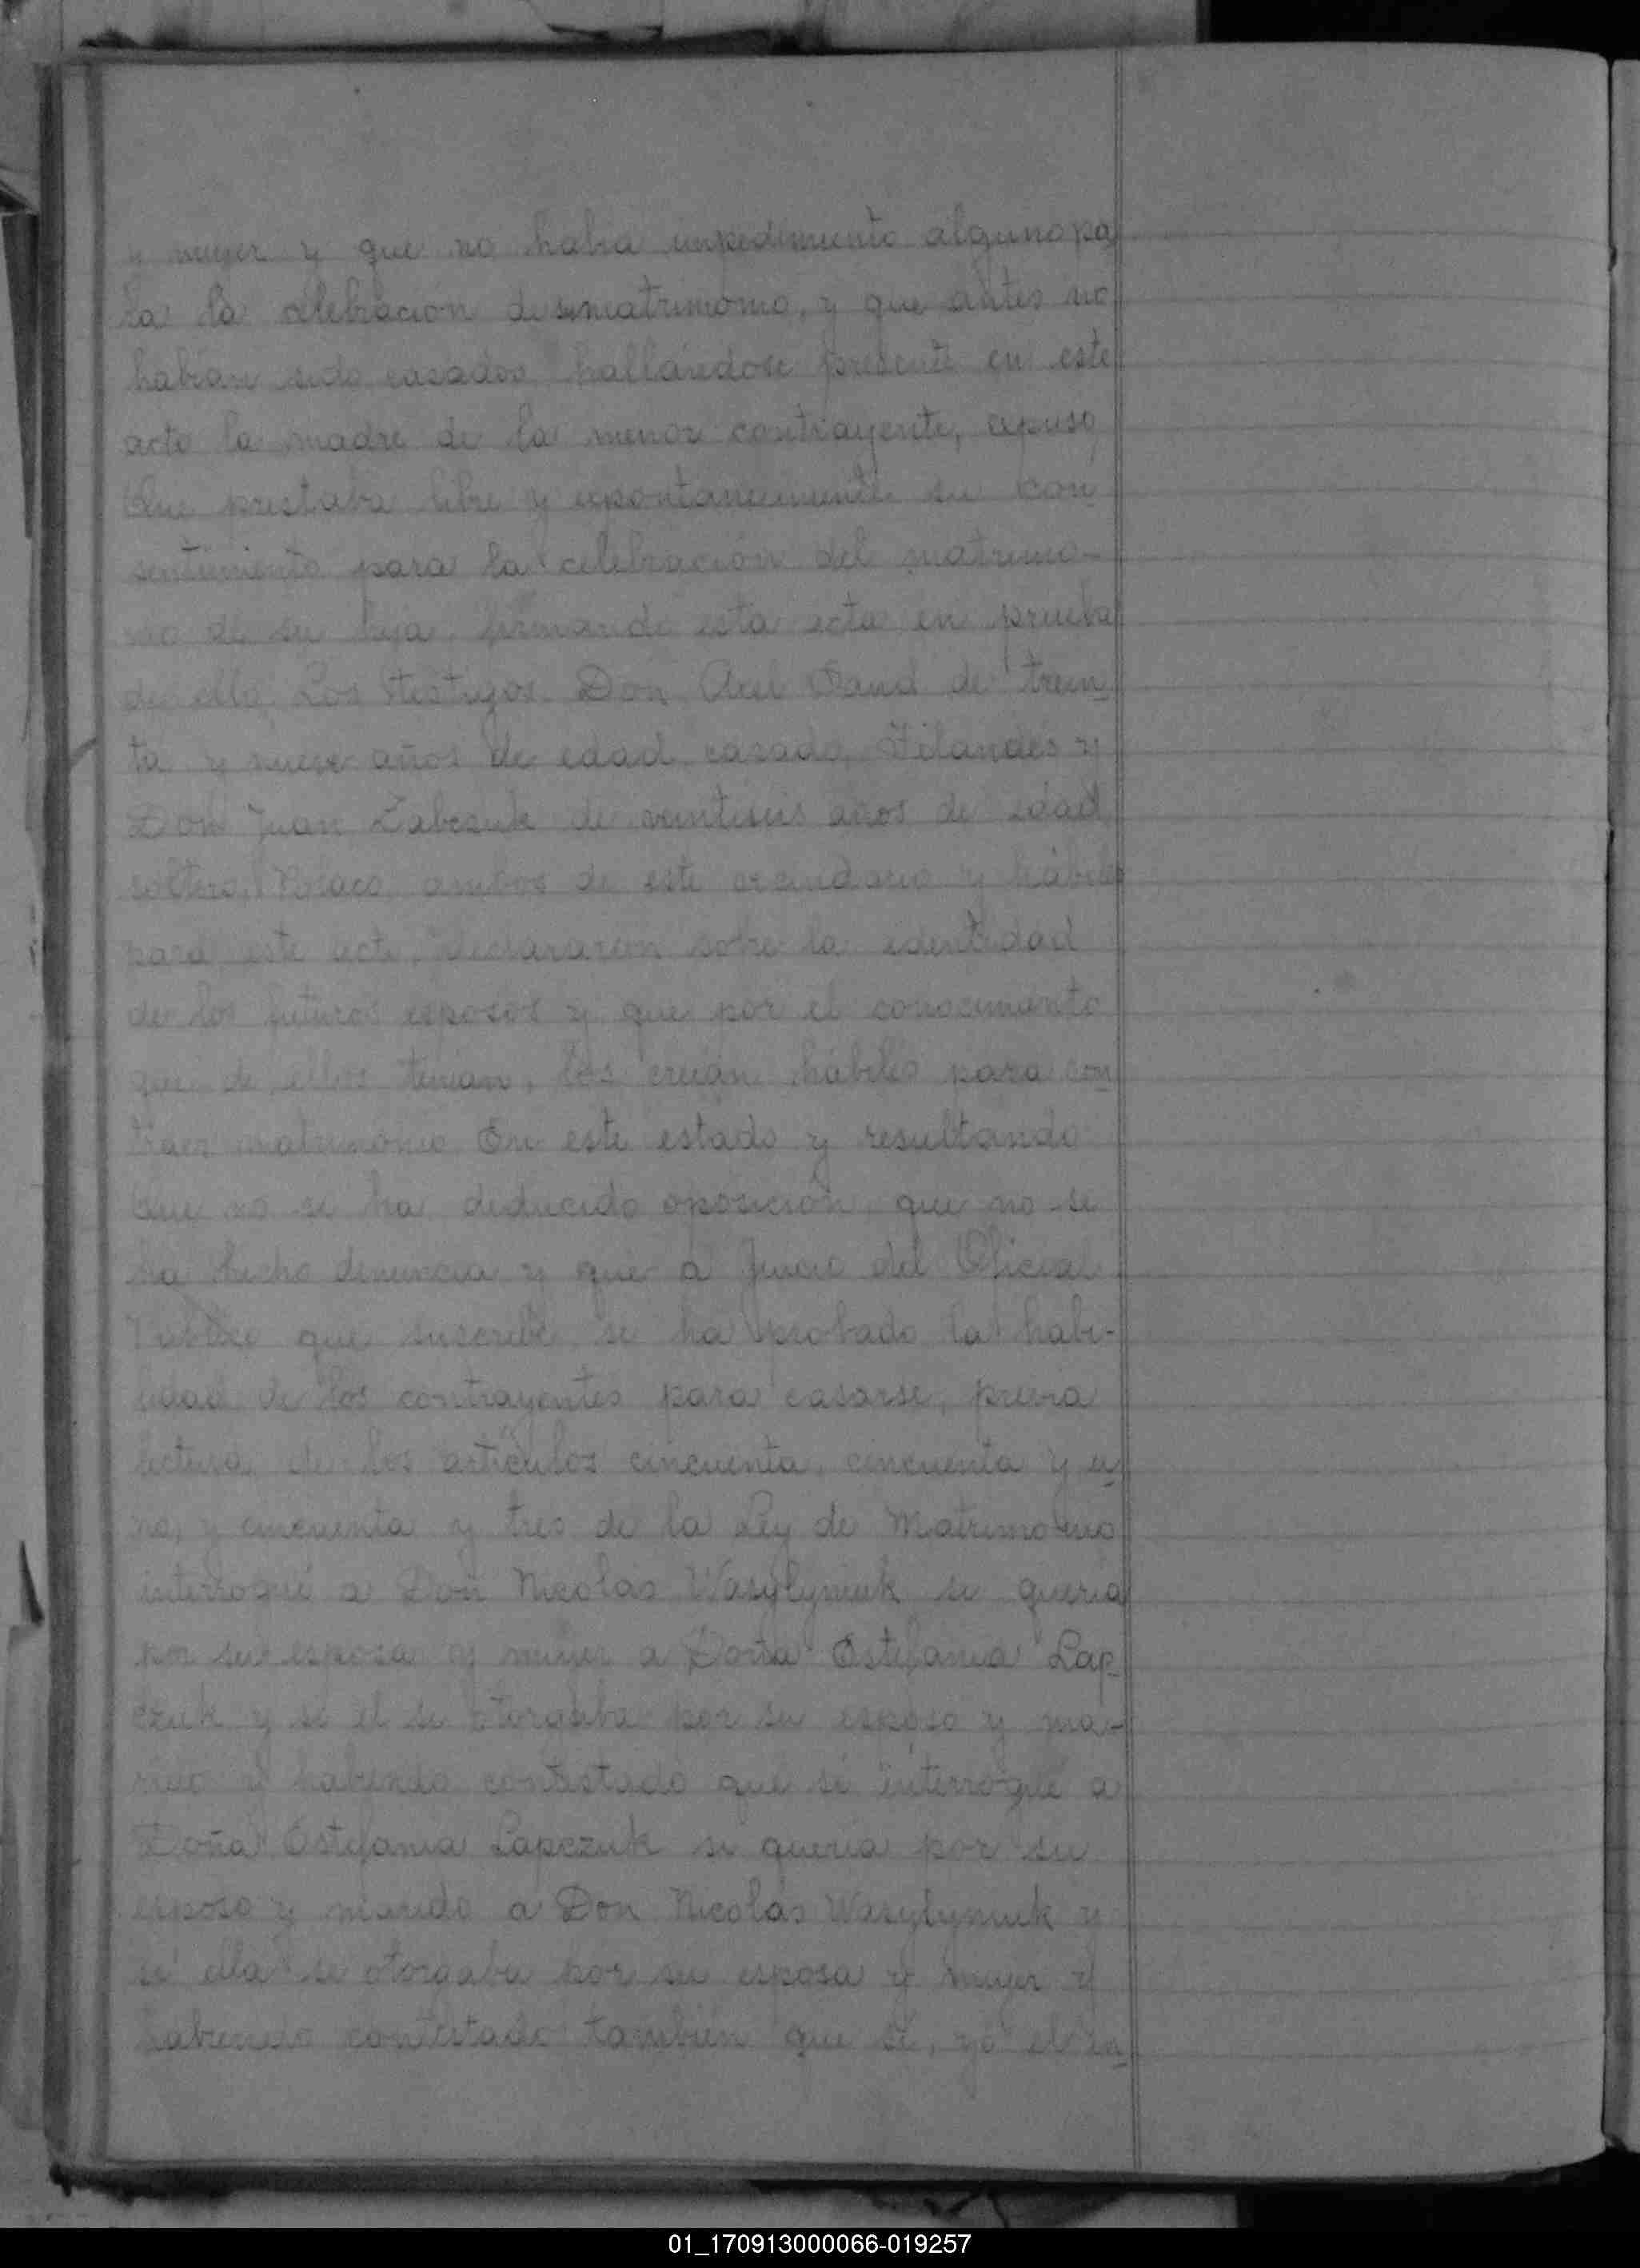 y mujer y que no habia impedimento alguno pa
ra la celebración de su matrimonio, y que antes no
habían sido casados, hallándose presente en este
acto la madre de la menor contrayente, expuso,
Que prestaba libre y espontaneamente su con
sentimiento para la celebración del matrimo-
nio de su hija, firmando esta acta en prueba
de ello. Los testigos. Don Axel Sand de trein
ta y nueve años de edad, casado, Filandés y
Don Juan Zabczuk de veintiseis años de edad
soltero, Polaco, ambos de este vecindario y hábiles
para este acto, declararon sobre la identidad
de los futuros esposos y que por el conocimiento
que de ellos tenian, los creian hábiles para con
traer matrimonio. En este estado y resultando
Que no se ha deducido oposición, que no se
ha hecho denuncia y que a juicio del Oficial
Público que suscribe, se ha probado la habi-
lidad de los contrayentes para casarse, previa
lectura de los artículos cincuenta, cincuenta y u
no, y cincuenta y tres de la Ley de Matrimonio
interrogué a Don Nicolás Wasylyniuk si queria
por su esposa y mujer a Doña Estefania Lap
czuk y si el se otorgaba por su esposo y ma-
rido y habiendo contestado que si interrogué a
Doña Estefania Lapczuk si queria por su
esposo y marido a Don Nicolás Wasylyniuk y
si ella se otorgaba por su esposa y mujer y
habiendo contestado también que sí, yo el in
01_170913000066-019257